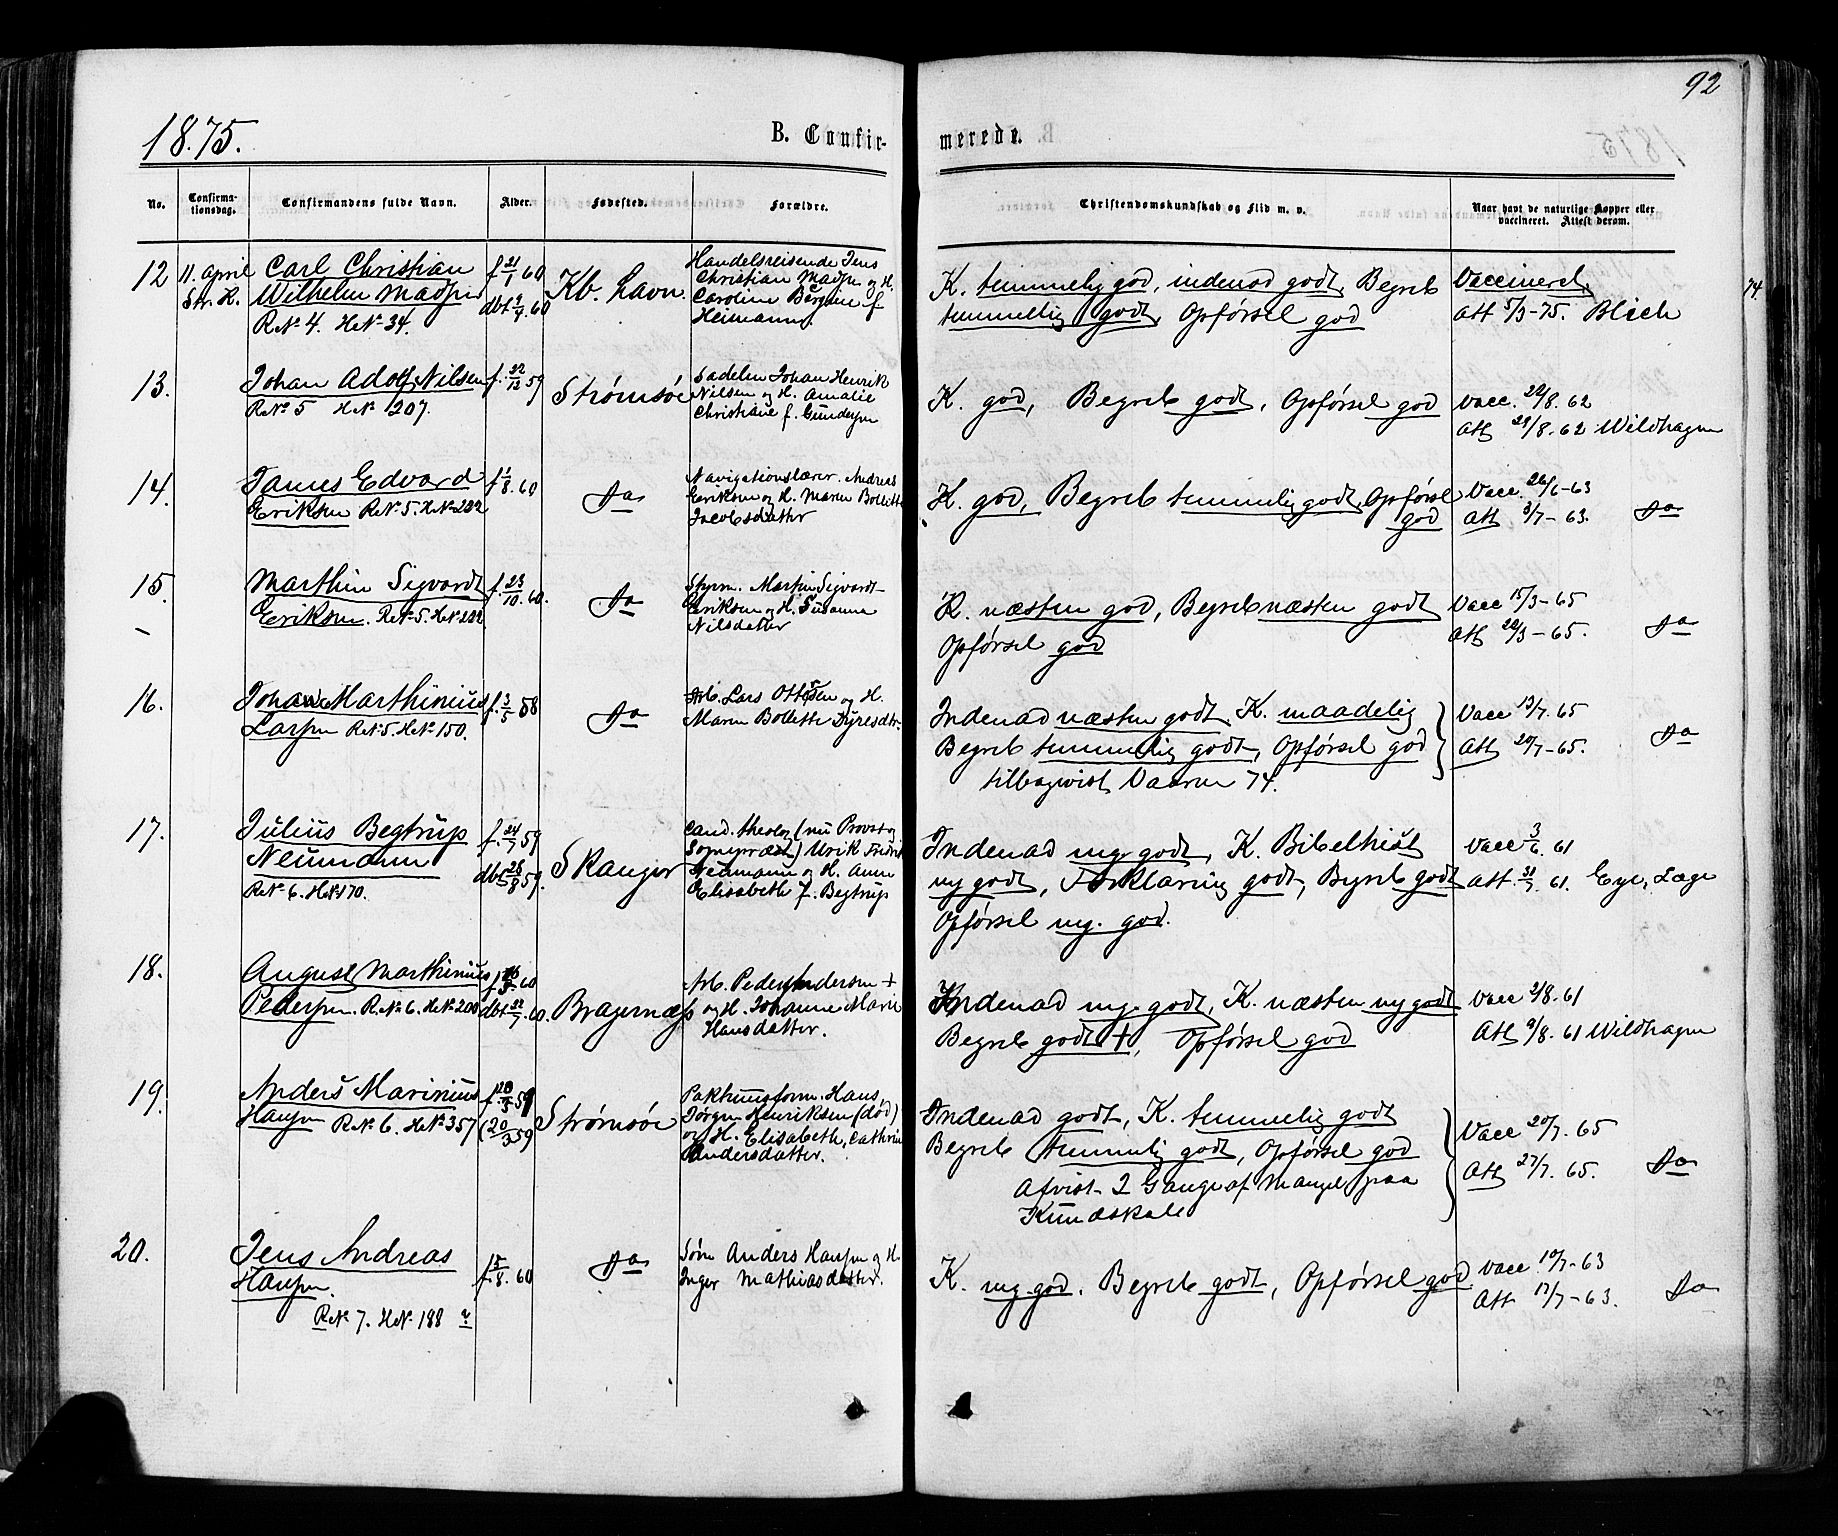 92
1875.
B. Confirmerede.
No.
Confirmationsdag.
Confirmandens fulde Navn.
Alder.
Fødested.
Forældre.
Christendomskundskab og Flid m. v.
Naar havt de naturlige Kopper eller
vaccineret. Attest derom.
12
11. April
Str. K.
Carl Christian
Wilhelm Madsen
R.No 4. H.No 34.
f. 21/1 60
dbt 9/4. 60
Kb. havn.
Handelsreisende Jens
Christian Madsen og H.
Caroline Børgine f
Heimann.
K. temmelig god, indenad godt, Begreb
temmelig godt, Opførsel god
Vaccineret,
Att 5/3-75. Blich
74.
13.
Johan Adolf Nilsen
R.No 5 H.No 207.
f. 22/12 59
Strømsøe
Sadelm Johan Henrik
Nilsen og H. Amalie
Christiane f. Gundersen
K. god, Begreb godt, Opførsel god
Vacc. 22/8. 62
Att 29/8. 62 Wildhagen
14.
James Edvard
Eriksen R.No 5. H.No 222
f. 1/8. 60
Do
Navigationslærer Andreas
Eriksen og H. Maren Bollette
Jacobsdatter
K. god, Begreb temmelig godt, Opførsel
god
Vacc. 26/6-63
Att 3/7-63. Do
15.
Marthin Sigvardt
Eriksen. R.No 5. H.No 222
f. 23/10. 60.
Do
Styrm. Martin Sigvardt
Eriksen og H. Susanne
Nilsdatter
K. næsten god, Begreb næsten godt
Opførsel god
Vacc 15/3-65
Att 22/3-65. Do
16.
Johan Marthinius
Larsen R.No 5. H.No 150.
f. 3/5 58
Do
Arb. Lars Ottesen og H.
Maren Bollette Dyresdtr.
Indenad næsten godt, K. maadelig
Begreb temmelig godt, Opførsel god
tilbagevist Vaaren 74.
Vacc 13/7. 65
Att 20/7-65. Do
17.
Julius Begtrup
Neumann
R.No 6. H.No 170.
f. 24/7 59
dbt 28/8 59.
Skanger
Cand. theolog (nu Provst og
Sognepræst) Ulrik Fredrik
Neumann og H. Anne
Elisabeth f. Begtrup
Indenad mg. godt, K. Bibelhist
mg godt, Forklaring godt, Begreb godt
Opførsel mg. god.
Vacc 3/6. 61
Att. 31/7. 61. Eye, Læge
18.
August Marthinius
Pedersen. R.No 6. H.No 200
dbt 22/7. 60.
Bragernæs
Arb. Peder Andersen +
og H. Johanne Marie
Hansdatter.
Indenad mg. godt, K. næsten mg godt
Begreb godt +, Opførsel god
Vacc 2/8. 61
Att 9/8. 61 Wildhagen
19.
Anders Marinius
Hansen R.No 6. H.No 357
f. 20/3 59
(20/3 59
Strømsøe
Pakhuusform. Hans
Jørgen Henriksen (død)
og H. Elisabeth Cathrine
Andersdatter.
Indenad godt, K. temmelig godt
Begreb temmelig godt, Opførsel god
Afvist 2 Gange af Mangel paa
Kundskab
Vacc 20/7. 65
Att 27/7. 65. Do
20.
Jens Andreas
Hansen.
R.No 7. H.No 188
f. 5/8. 60
Do
Søm Anders Hansen og H.
Inger Mathiasdatter.
K. mg. god. Begreb godt, Opførsel god
Vacc. 10/7-63
Att 17/7-63. Do